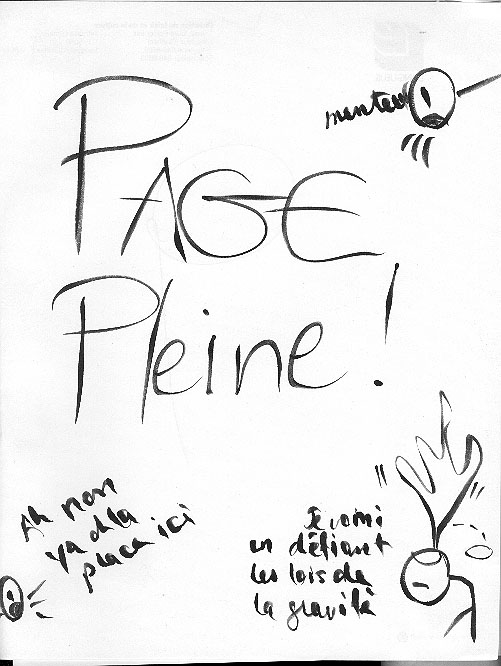 menteur
PAGE
Pleine !
Ah non
ya dla
place ici
Je vomi
en défiant
les lois de
la gravité